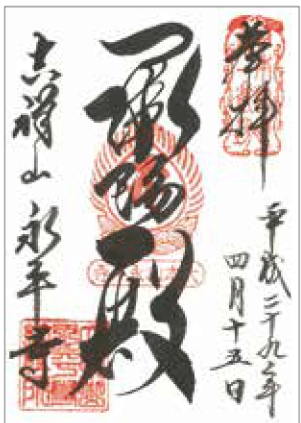 奉拝
平成二十九年
四月十五日
承陽殿
吉祥山 永平寺